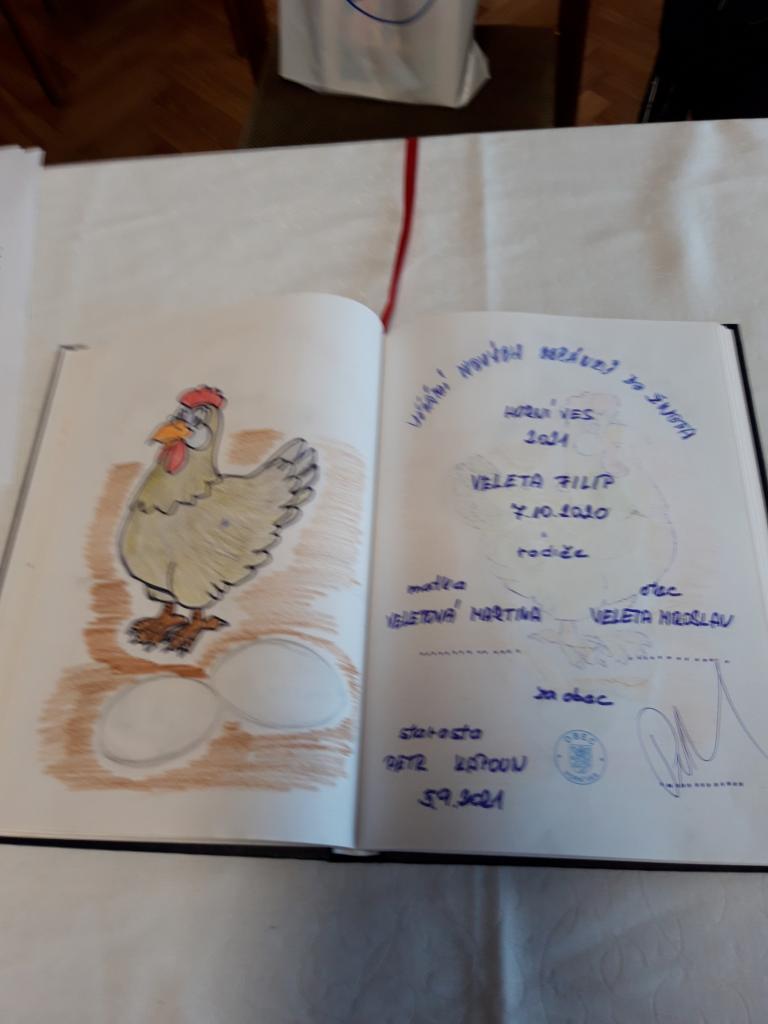 VÍTÁNÍ NOVÝCH OBČÁNKŮ DO ŽIVOTA
HORNÍ VES
2021
VELETA FILIP
7.10.2020
rodiče
matka otec
VELETOVÁ MARTINA VELETA MIROSLAV
za obec
starosta
PETR KAPOUN
5.9.2021
OBEC